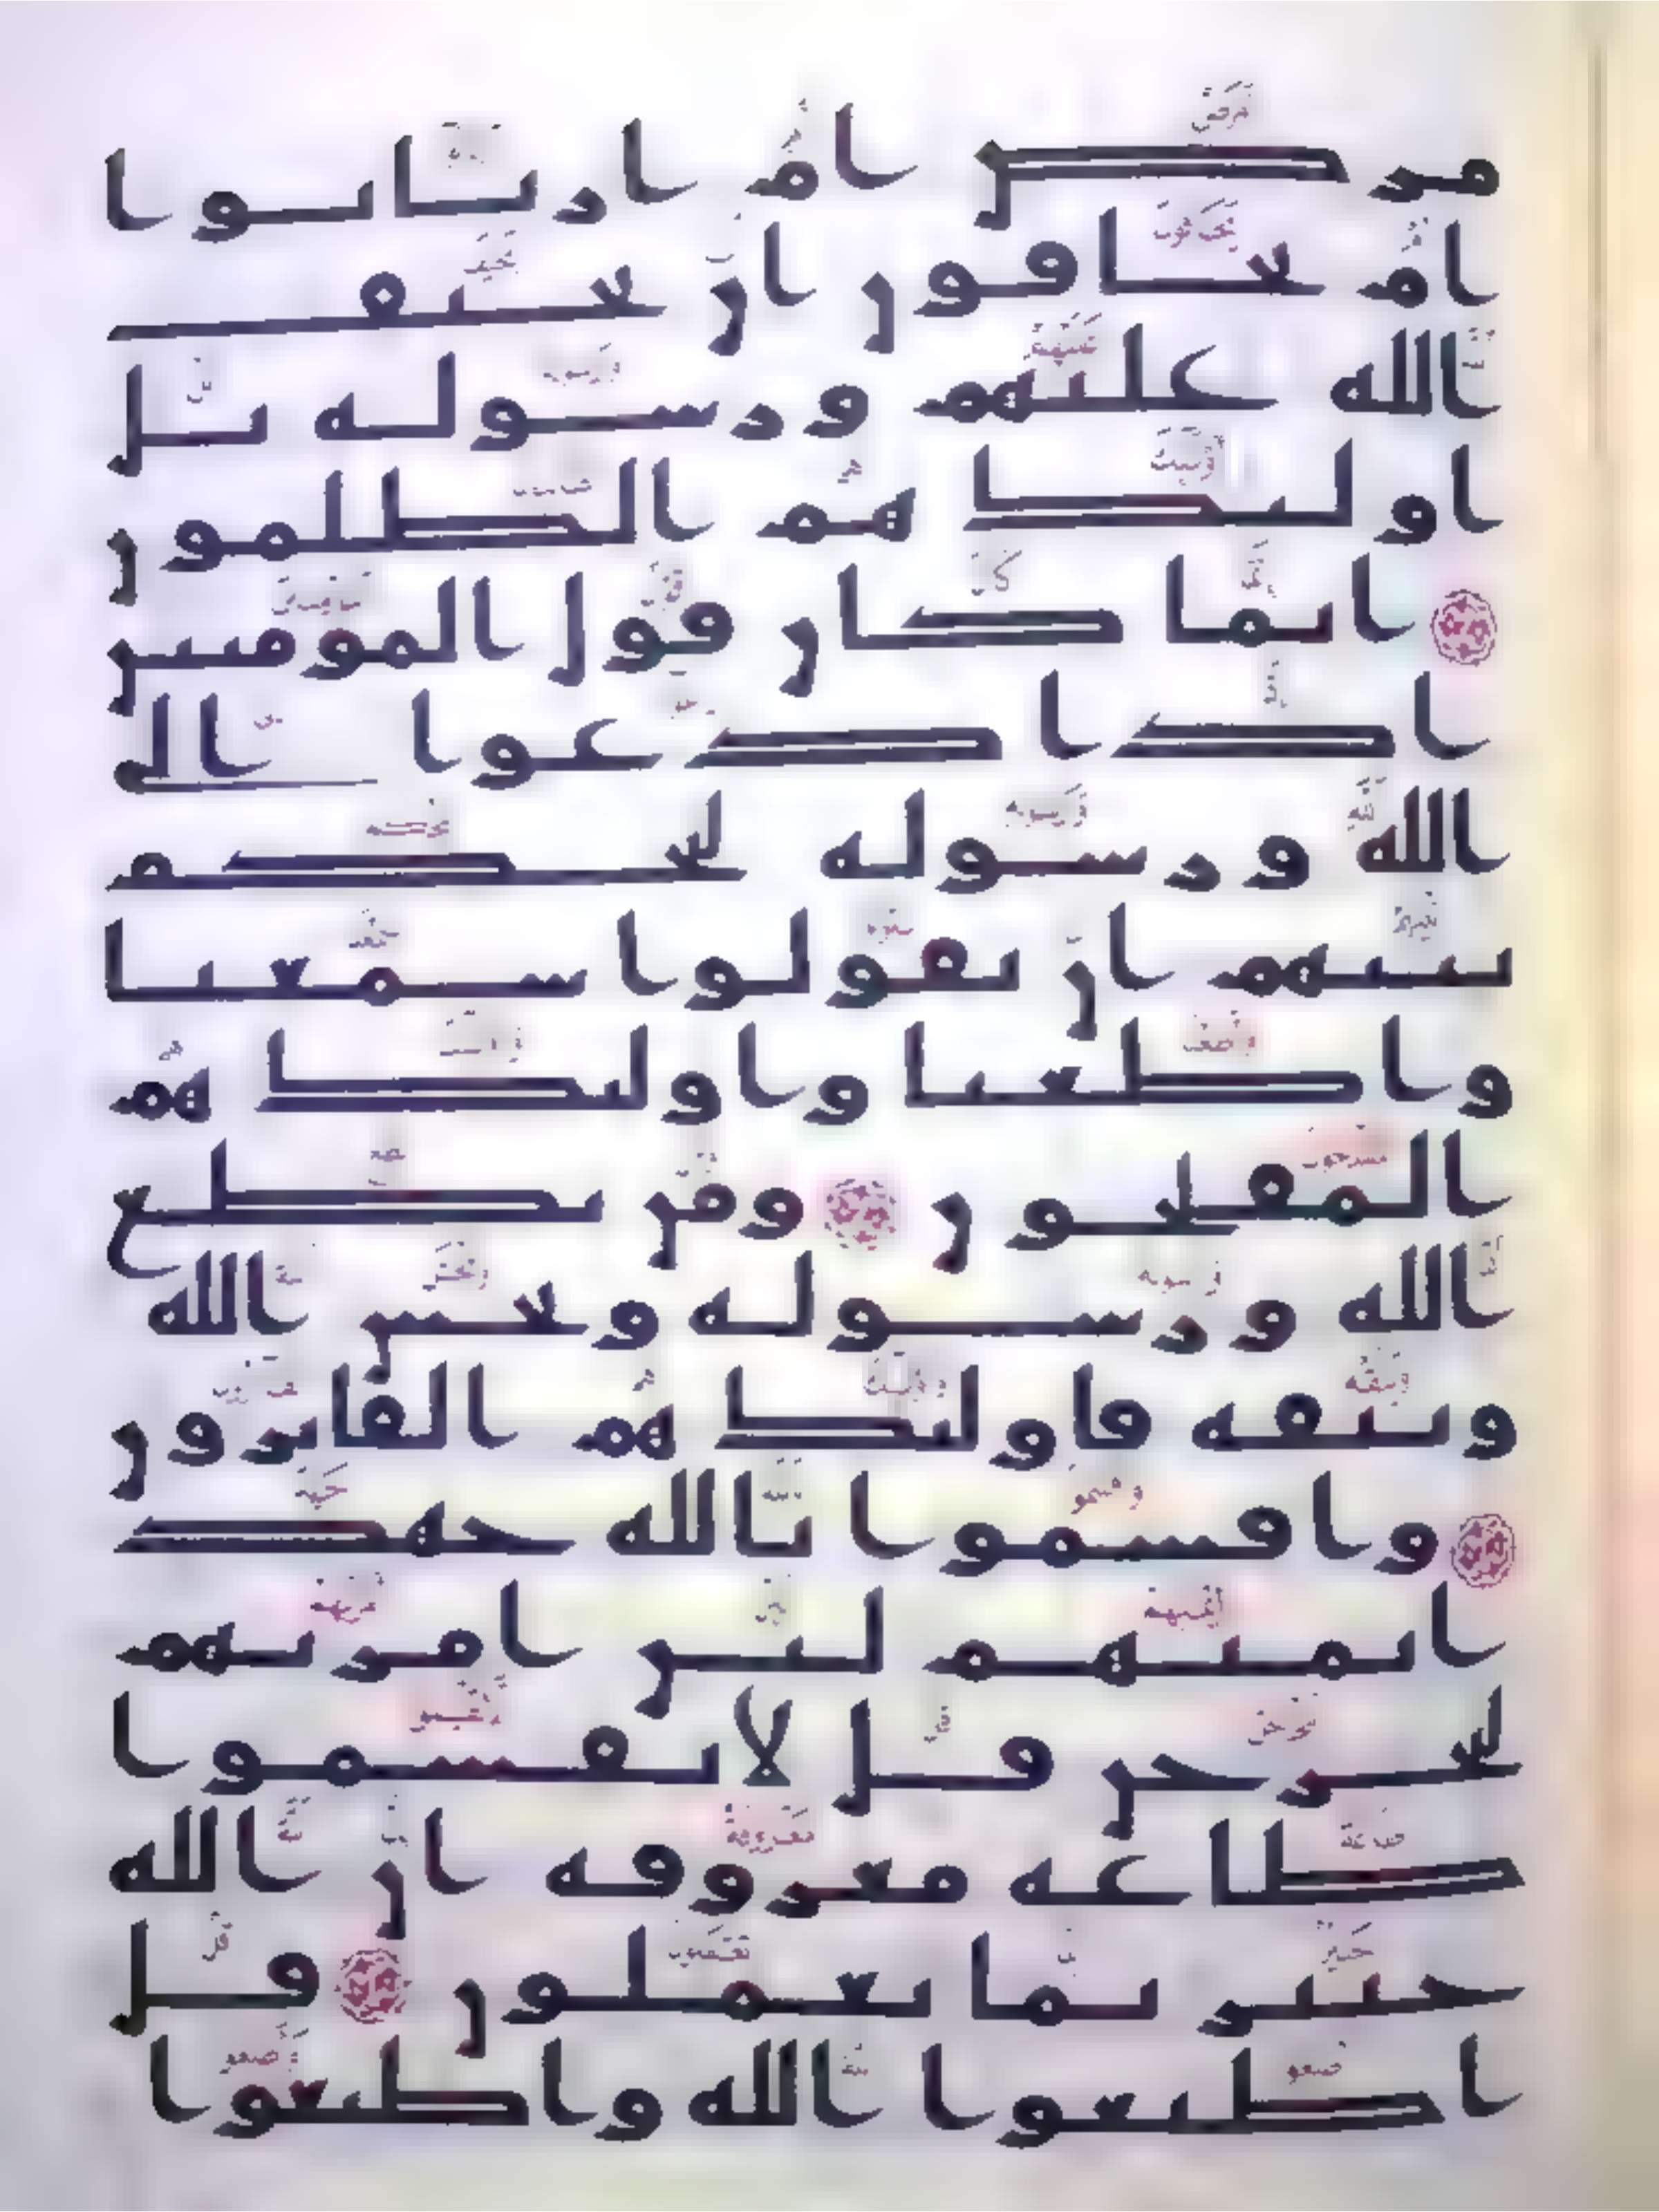 مرض ام ارتابوا
ام يخافون ان يحيف
الله عليهم ورسوله بل
اولئك هم الظلمون
انما كان قول المومنين
اذا دعوا الى
الله ورسوله ليحكم
بينهم ان يقولوا سمعنا
واطعنا واولئك هم
المفلحون ومن يطع
الله ورسوله ويخش الله
ويتقه فاولئك هم الفائزون
واقسموا بالله جهد
ايمنهم لئن امرتهم
ليخرجن قل لا تقسموا
طاعة معروفة ان الله
خبير بما تعملون قل
اطيعوا الله واطيعوا